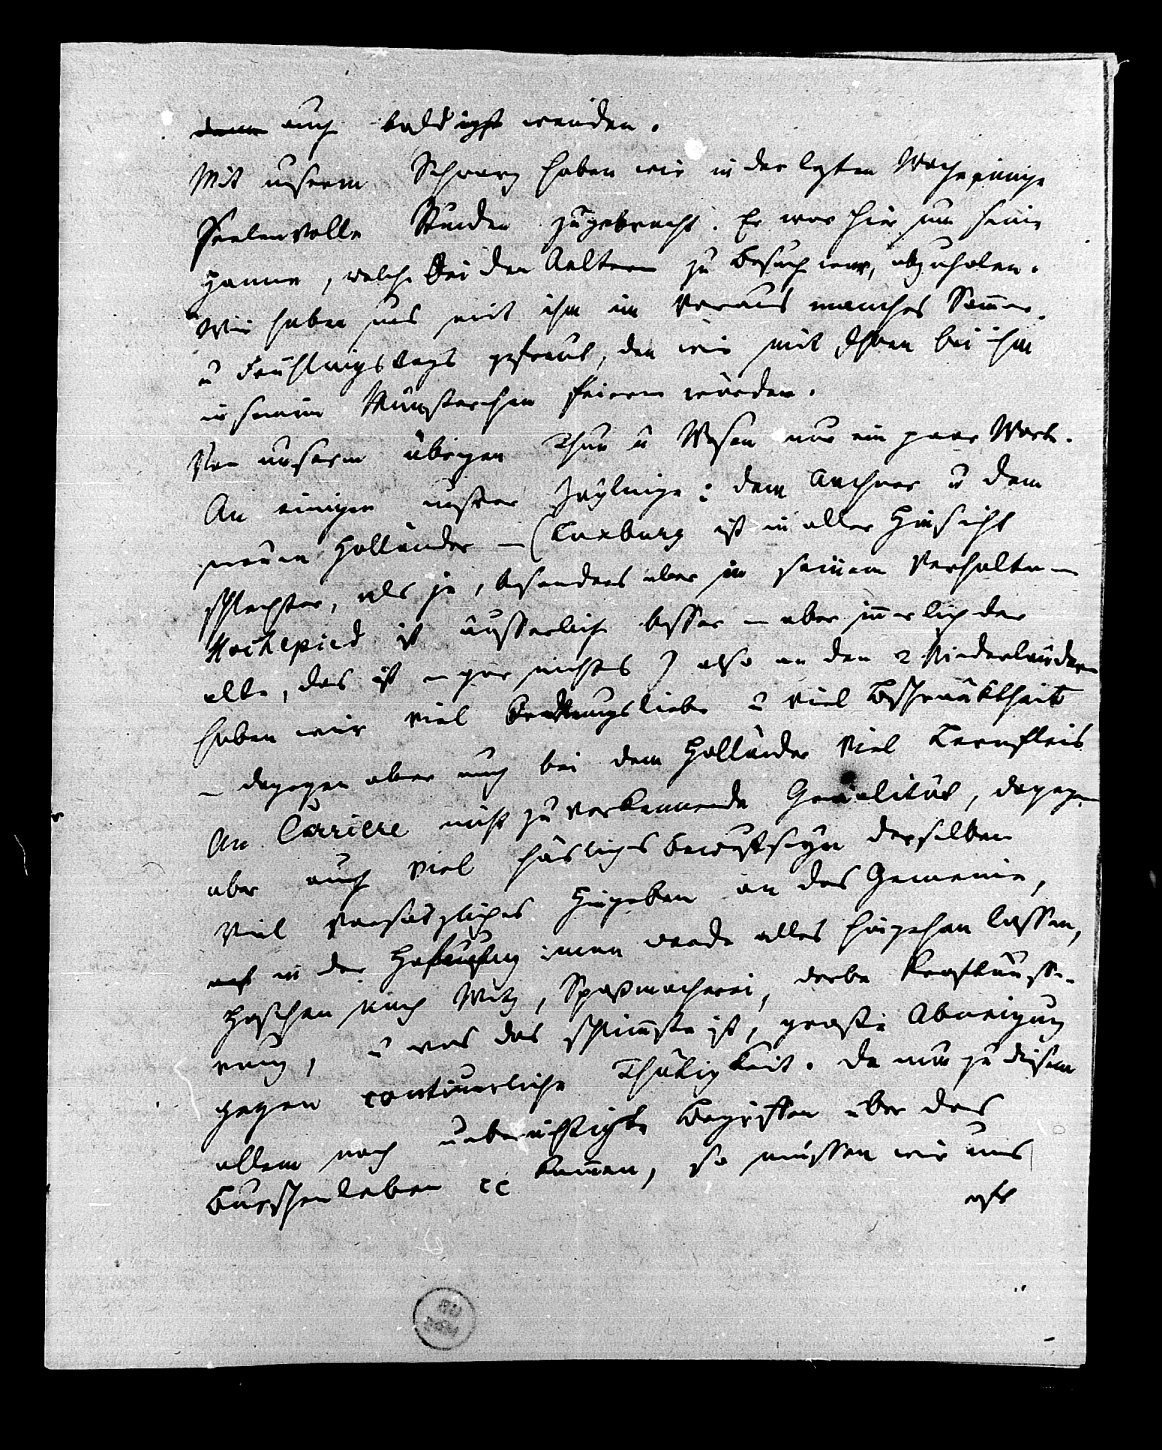 auch baldigst werden.
Mit unserm Schwarz haben wir in der lezten Woche einige
Seelenvolle Stunden zugebracht. Er war hier um seine
Hanne, welche bei den Aeltern zu Besuch war, abzuholen.
Wir haben uns mit ihm im Voraus manches Sommer-
u Frühlingstags gefreut, den wir mit Ihnen bei ihm
in seinem Münsterchen feiern würden.
Von unserm übrigen Thun u Wesen nur ein paar Worte.
An einigen unsrer Zöglinge: dem u dem
neuen Holländer — (Laxburg ist in aller Hinsicht
schlechter, als je, besonders aber in seinem Verhalten —
Hochepied ist äusserlich besser — aber innerlich der
alte, das ist — gar nichts) also an den 2 Niederländern
haben wir viel liebe u viel Beschränktheit
— dagegen aber auch bei dem Holländer viel Lernfleis
An Cariere nicht zu verkennende Genialität, dagegen
aber auch viel häsliches Bewustseyn derselben
viel vorsäzliches Hingeben an das Gemeine,
in der Hofnung man werde alles hingehen lassen,
Haschen nach Witz, Spaßmacherei, derbe Kraftäusse-
rung, u was das schlimmste ist, große Abneigung
gegen continuerliche Thätigkeit. Da nun zu diesem
allem noch unberichtigte Begriffen über das
Burschenleben cc kamen, so müssen wir uns
oft